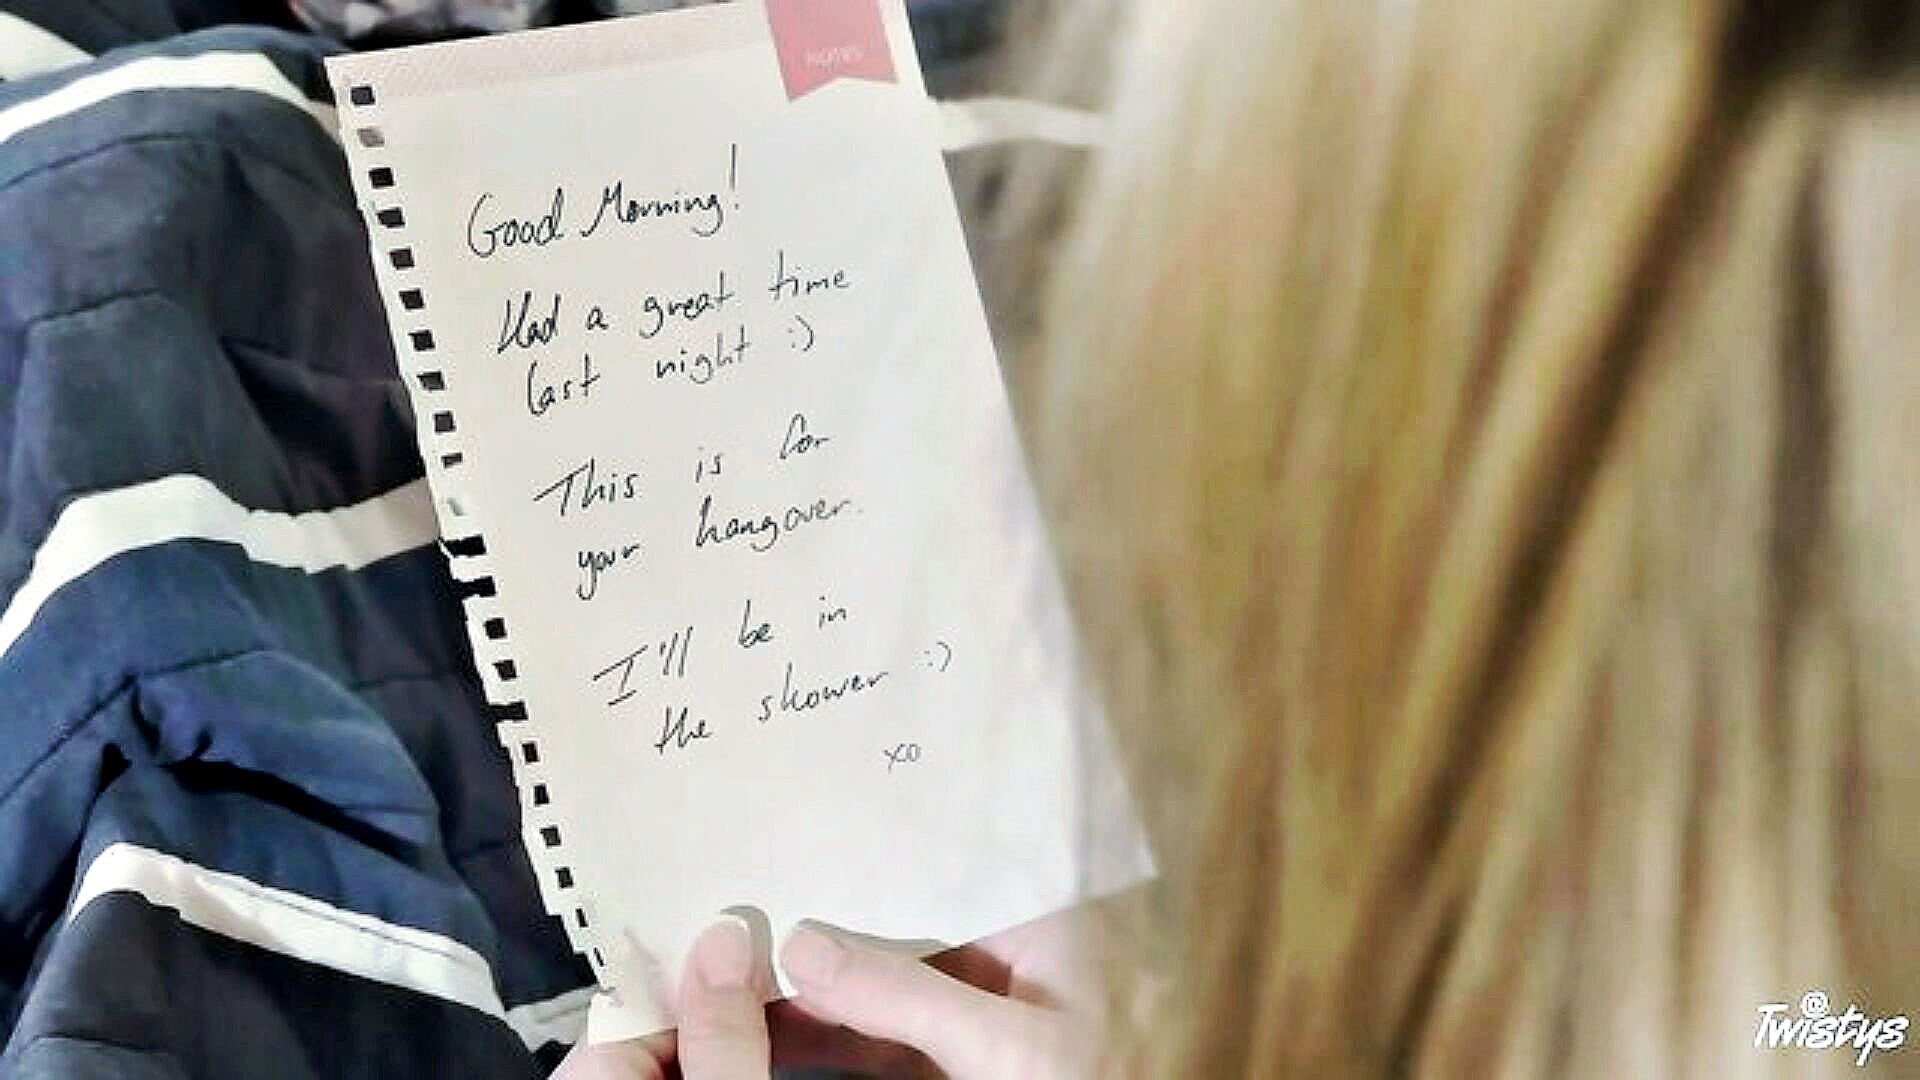 NOTES
Good Morning!
Had a great time
last night :)
This is for
your hangover.
I'll be in
the shower :)
xo
@
Twistys